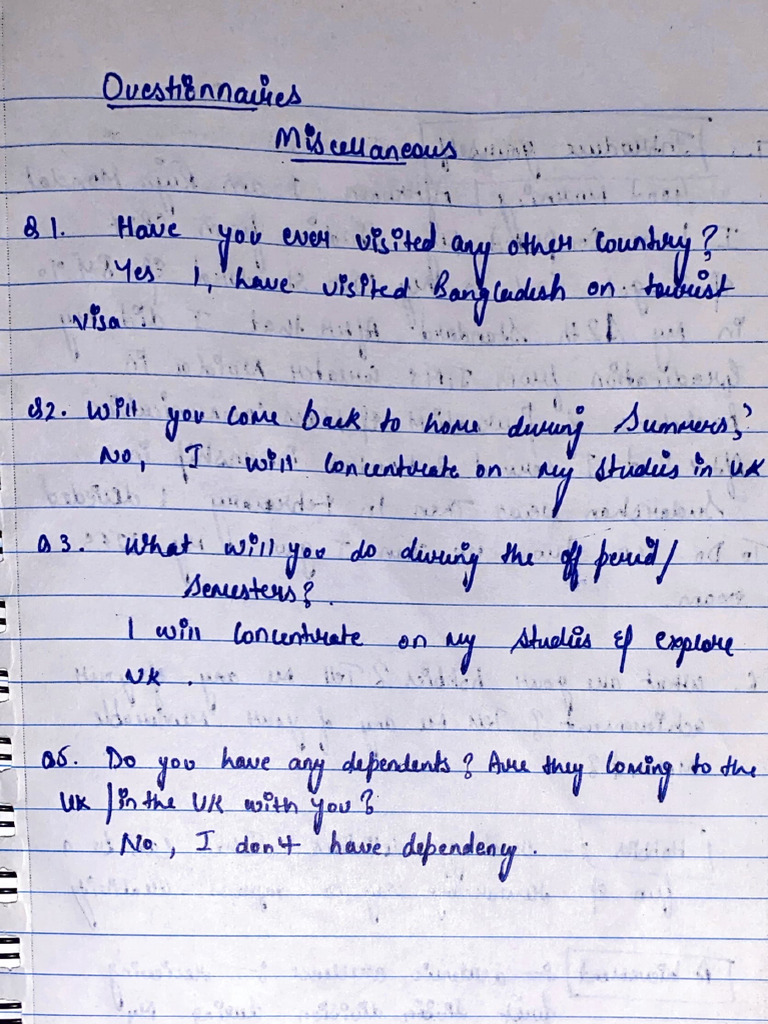 Questionnaires
Miscellaneous
Q1. Have you ever visited any other country?
Yes I, have visited Bangladesh on tourist
visa
Q2. Will you come back to home during Summers?
No, I will concentrate on my studies in UK
Q3. What will you do during the off period/
Semesters?
I will concentrate on my studies & explore
UK.
Q5. Do you have any dependents? Are they coming to the
UK / in the UK with you?
No, I don't have dependency.